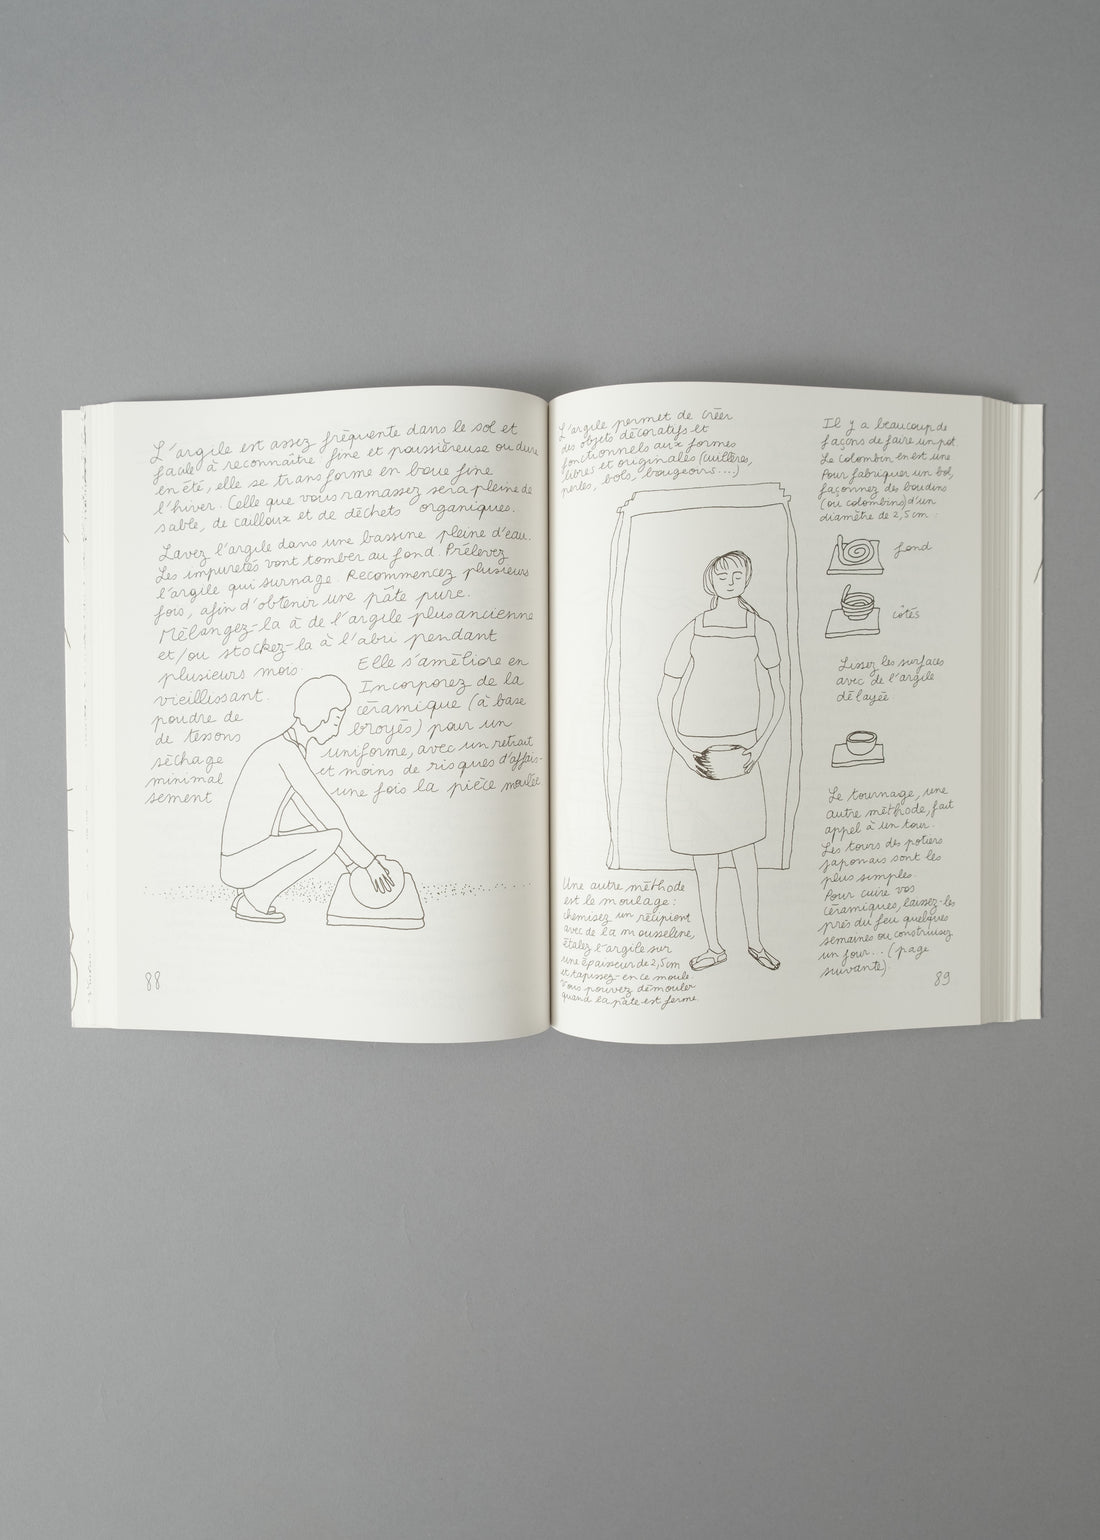 L'argile est assez fréquente dans le sol et
facile à reconnaître fine et poussiéreuse ou dure
en été, elle se transforme en boue fine
l'hiver. Celle que vous ramassez sera pleine de
sable, de cailloux et de déchets organiques.
Lavez l'argile dans une bassine pleine d'eau.
Les impuretés vont tomber au fond. Prélevez
l'argile qui surnage. Recommencez plusieurs
fois, afin d'obtenir une pâte pure.
Mélangez-la à de l'argile plus ancienne
et/ou stockez-la à l'abri pendant
plusieurs mois. Elle s'améliore en
vieillissant. Incorporez de la
poudre de céramique (à base
de tessons broyés) pour un
séchage uniforme, avec un retrait
minimal et moins de risques d'affais-
sement une fois la pièce moulée
88
L'argile permet de créer
des objets décoratifs et
fonctionnels aux formes
libres et originales (cuillères,
perles, bols, bougeoirs...)
Une autre méthode
est le moulage :
chemisez un récipient
avec de la mousseline,
étalez l'argile sur
une épaisseur de 2,5 cm
et tapissez-en ce moule.
Vous pouvez démouler
quand la pâte est ferme.
Il y a beaucoup de
façons de faire un pot
Le colombin en est une
Pour fabriquer un bol,
façonnez des boudins
(ou colombins) d'un
diamètre de 2,5 cm :
fond
côtés
Lissez les surfaces
avec de l'argile
délayée
Le tournage, une
autre méthode, fait
appel à un tour.
Les tours des potiers
japonais sont les
plus simples.
Pour cuire vos
céramiques, laissez-les
près du feu quelques
semaines ou construisez
un four... (page
suivante).
89